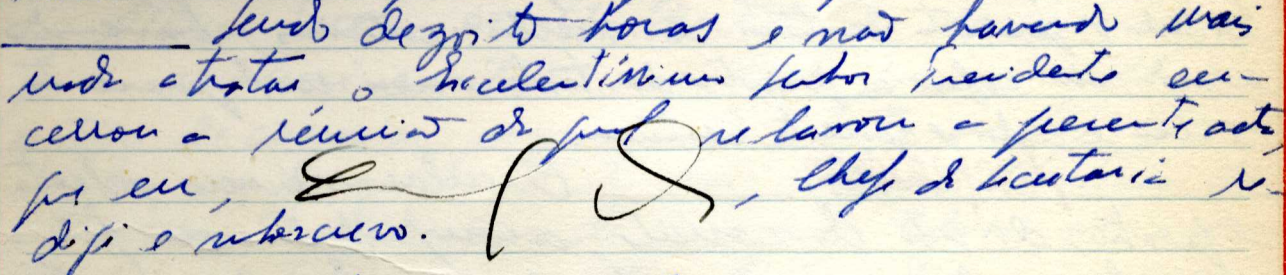 Sendo dezoito horas e não havendo mais
nada a tratar o Excelentíssimo Senhor Presidente en-
cerrou a reunião da qual se lavrou a presente acta,
que eu, , Chefe da Secretaria re-
digi e subscrevo.